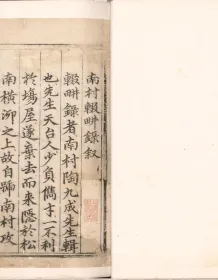 南村輟畊錄叙
輟畊錄者南村陶九成先生輯
也先生天台人少負雋才一不利
於塲屋遂棄去而来隱於松
南橫泖之上故自號南村攻